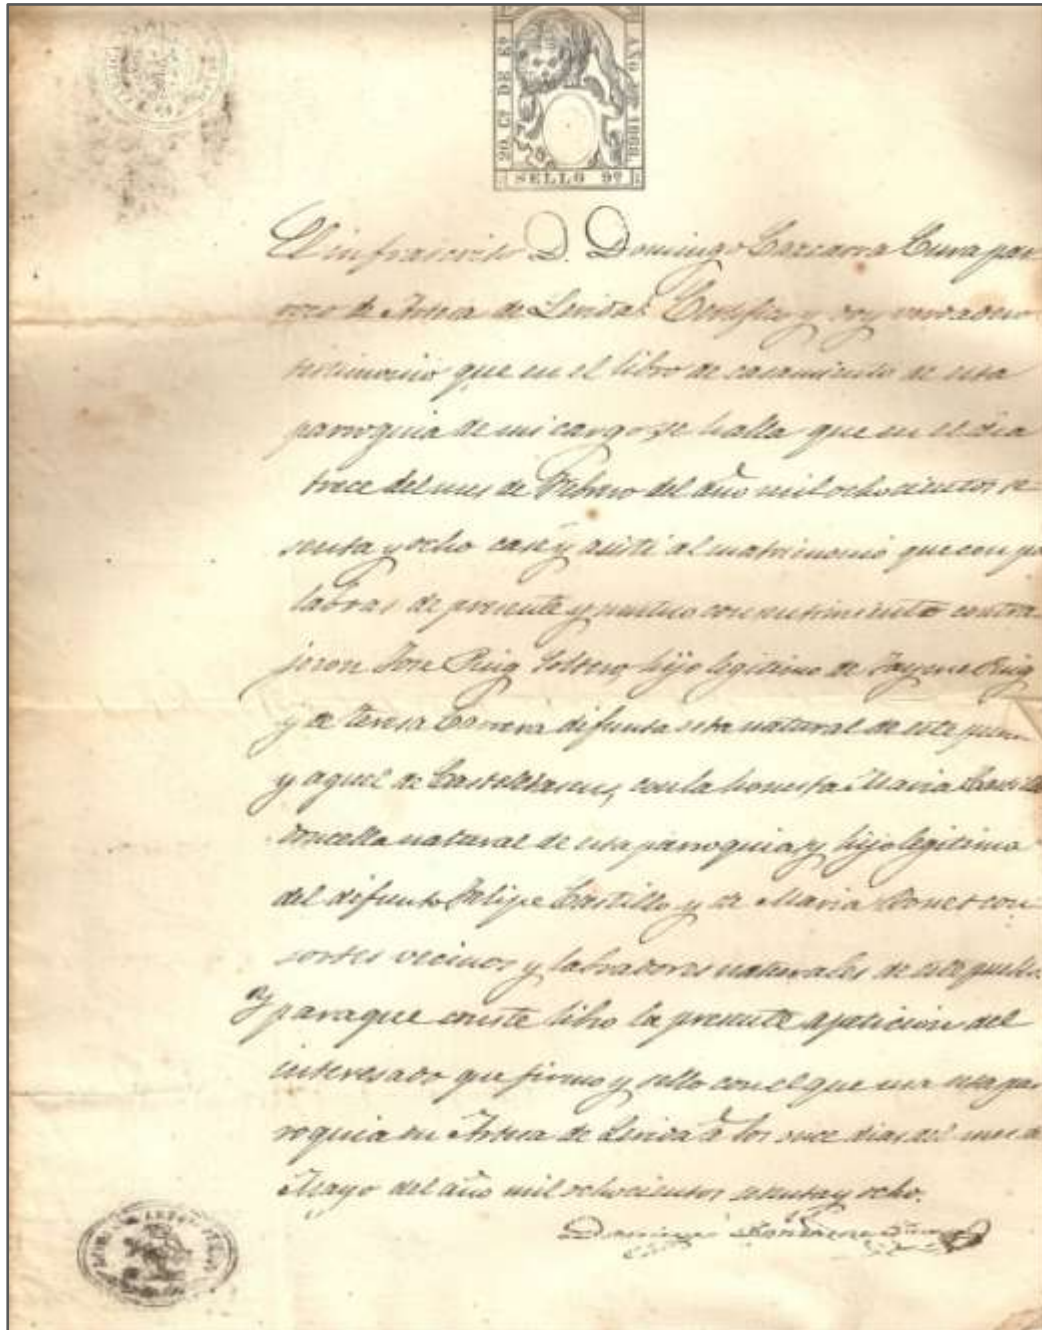 20 Cs DE Eo
AÑO DE 1868.
SELLO 9º
El infrascrito D. Domingo Cura pár
roco de Artesa de Lerida: Certifico y doy verdadero
testimonio que en el libro de casamiento de esta
parroquia de mi cargo se halla que en el dia
trece del mes de Febrero del año mil ochocientos se
senta y ocho casé y asistí al matrimonio que con pa
labras de presente y mutuo consentimiento contra
jeron Jose Puig Soltero, hijo legitimo de Jayme Puig
y de Teresa difunta esta natural de este
y aquel de con la honesta Maria Castillo
doncella natural de esta parroquia y hijo legitima
del difunto Felipe Castillo y de Maria Bonet con
sortes vecinos y labradores naturales de este pueblo
Y para que conste libro la presente a peticion del
interesado que firmo y sello con el que usa esta par
roquia en Artesa de Lerida á los once dias del mes de
Mayo del año mil ochocientos sesenta y ocho.
Domingo